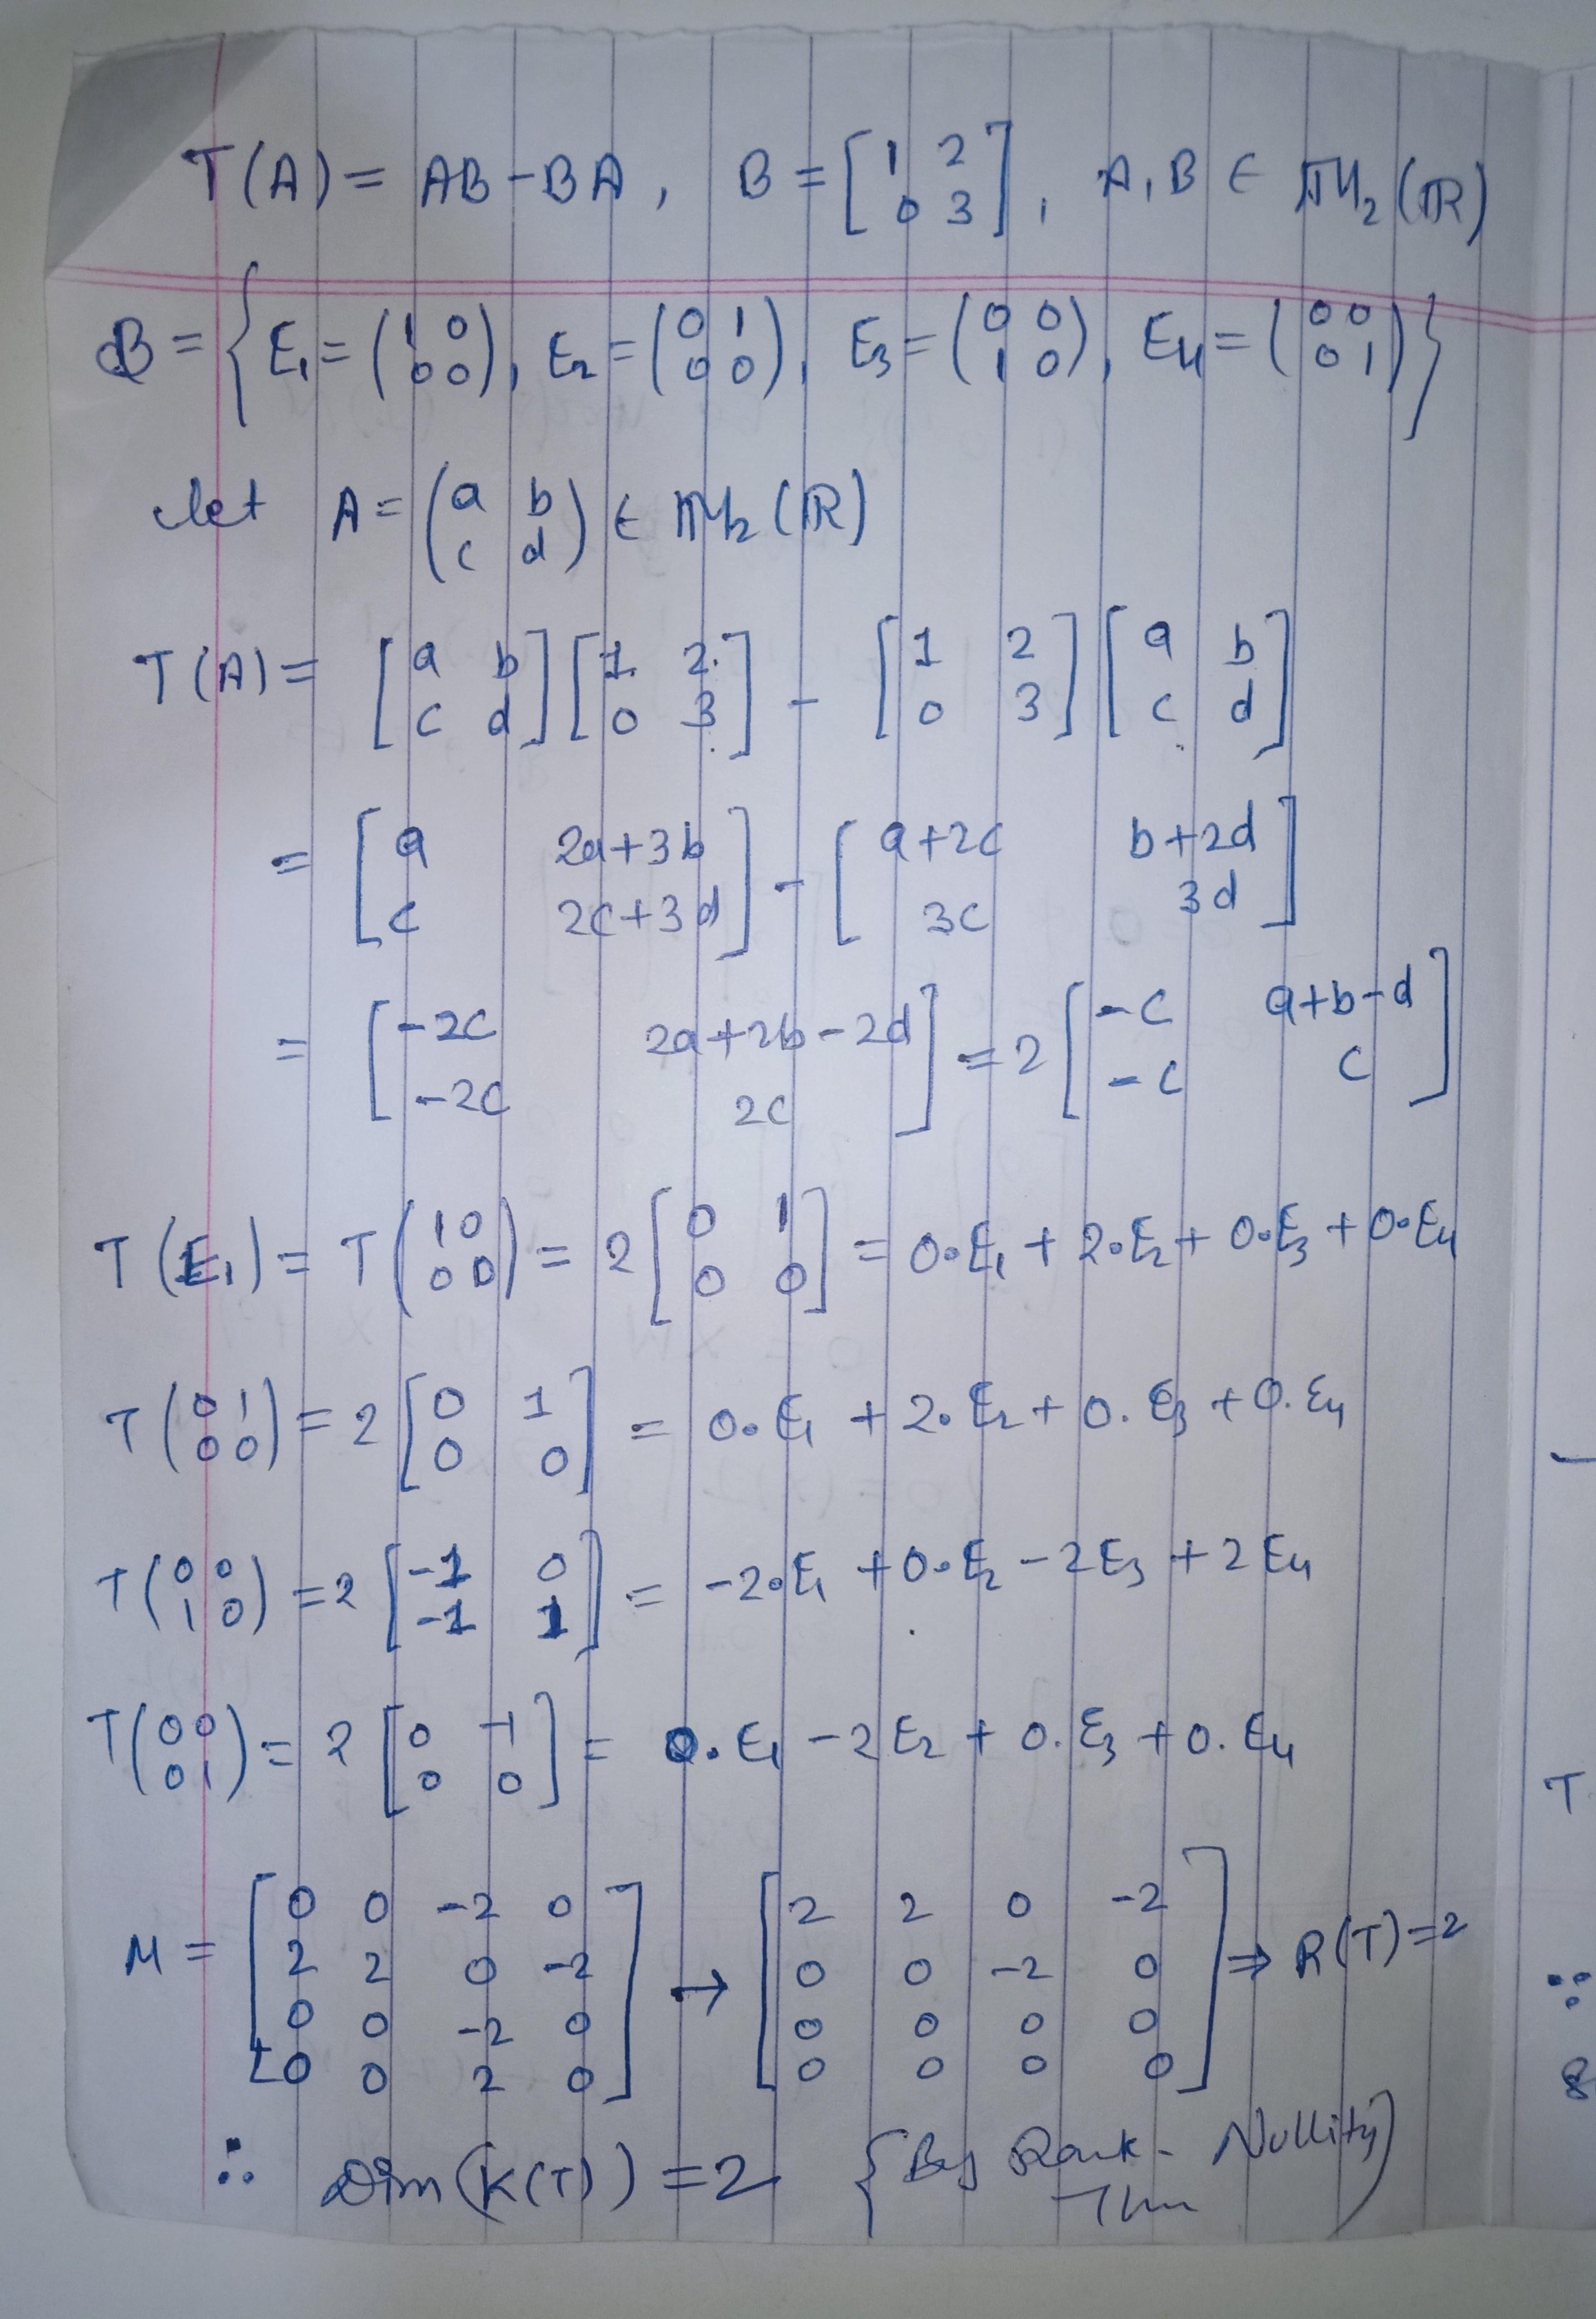 T(A) = AB - BA, B = [1 2; 0 3], A, B ∈ M₂(ℝ)
B = {E₁ = (1 0; 0 0), E₂ = (0 1; 0 0), E₃ = (0 0; 1 0), E₄ = (0 0; 0 1)}
let A = (a b; c d) ∈ M₂(ℝ)
T(A) = [a b; c d] [1 2; 0 3] - [1 2; 0 3] [a b; c d]
= [a 2a+3b; c 2c+3d] - [a+2c b+2d; 3c 3d]
= [-2c 2a+2b-2d; -2c 2c] = 2 [-c a+b-d; -c c]
T(E₁) = T(1 0; 0 0) = 2 [0 1; 0 0] = 0·E₁ + 2·E₂ + 0·E₃ + 0·E₄
T(0 1; 0 0) = 2 [0 1; 0 0] = 0·E₁ + 2·E₂ + 0·E₃ + 0·E₄
T(0 0; 1 0) = 2 [-1 0; -1 1] = -2·E₁ + 0·E₂ - 2E₃ + 2E₄
T(0 0; 0 1) = 2 [0 -1; 0 0] = 0·E₁ - 2E₂ + 0·E₃ + 0·E₄
M = [0 0 -2 0; 2 2 0 -2; 0 0 -2 0; 0 0 2 0] → [2 2 0 -2; 0 0 -2 0; 0 0 0 0; 0 0 0 0] ⇒ R(T) = 2
∴ Dim(K(T)) = 2 {By Rank-Nullity Thm}
T
∴
8